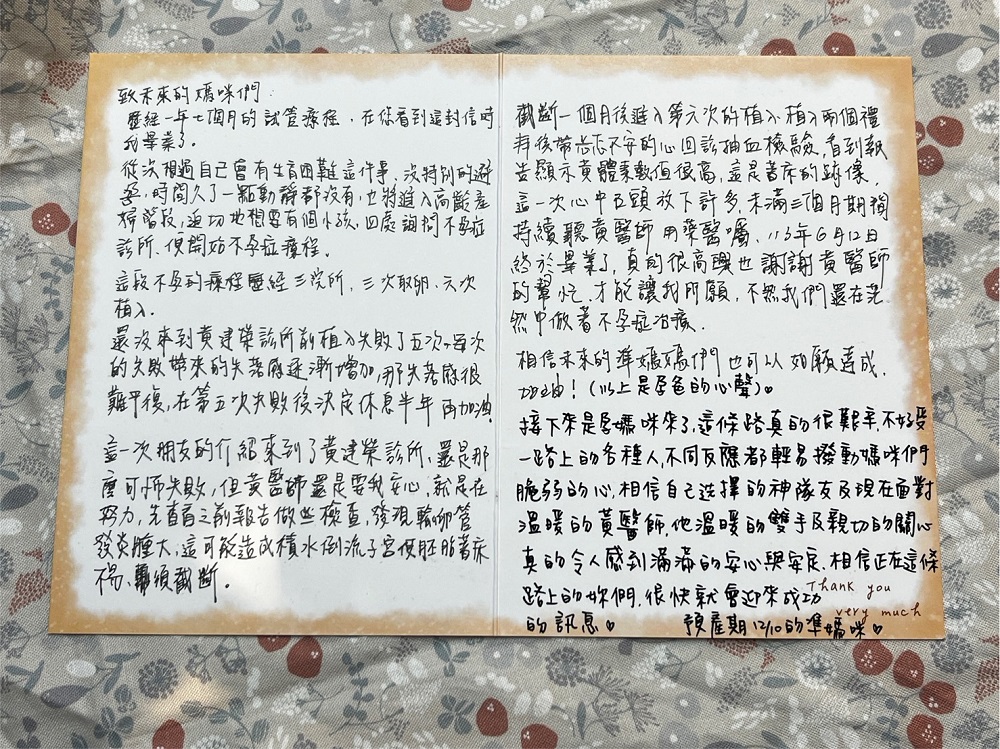 致未來的媽咪們:
歷經一年七個月的試管療程，在您看到這封信時
我畢業了。
從沒想過自己會有生育困難這件事、沒特別的避
孕，時間久了一點動靜都沒有，也將進入高齡產
婦階段，迫切地想要有個小孩、四處詢問不孕症
診所、便開始不孕症療程。
這段不孕的療程歷經三院所，三次取卵、六次
植入。
還沒來到黃建榮診所前植入失敗了五次、每次
的失敗帶來的失落感逐漸增加，那失落感很
難平復，在第五次失敗後決定休息半年 再加油
這一次朋友的介紹來到了黃建榮診所、還是那
麼可怕失敗，但黃醫師還是要我安心，就是在
努力，先查看之前報告做些檢查，發現輸卵管
發炎腫大，這可能造成積水倒流子宮使胚胎著床
不易、需須截斷。
截斷一個月後進入第六次的植入、植入兩個禮
拜後帶忐忑不安的心回診抽血檢驗，看到報
告顯示黃體素數值很高，這是著床的跡像，
這一次心中石頭放下許多，未滿三個月期間
持續聽黃醫師用藥醫囑、113年6月12日
終於畢業了，真的很高興也謝謝黃醫師
的幫忙，才能讓我所願，不然我們還在茫
然中做著不孕症治療．
相信未來的準媽媽們也可以如願達成．
加油！(以上是孕爸的心聲)♡
接下來是孕媽咪來了，這條路真的很艱辛，不好受
一路上的各種人，不同反應都輕易撥動媽咪們
脆弱的心，相信自己選擇的神隊友及現在面對
溫暖的黃醫師，他溫暖的雙手及親切的關心
真的令人感到滿滿的安心與安定、相信正在這條
路上的妳們，很快就會迎來成功
的訊息♡ 預產期12/10的準媽咪♡
Thank you
very much